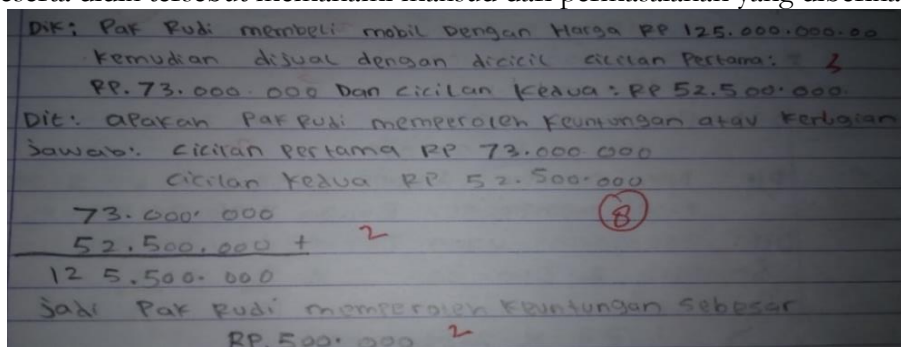 Dik: Pak Rudi membeli mobil Dengan Harga RP 125.000.000.00
Kemudian dijual dengan dicicil cicilan Pertama: 3
RP. 73.000.000 Dan cicilan Kedua: RP 52.500.000.
Dit: apakah Pak Rudi memperoleh Keuntungan atau Kerugian
Jawab: Cicilan Pertama RP 73.000.000
Cicilan Kedua RP 52.500.000
73.000.000 8
52.500.000 + 2
125.500.000
Jadi Pak Rudi memperoleh Keuntungan Sebesar
RP.500.000 2